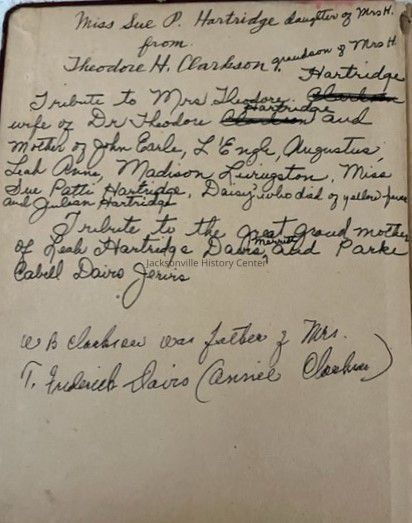 Miss Sue P. Hartridge daughter of Mrs H.
from
Theodore H. Clarkson, grandson of Mrs H.
Hartridge
Tribute to Mrs Theodore Clarkson
Hartridge
wife of Dr Theodore Clarkson and
Mother of John Earle, L'Engle, Augustus,
Leah Anne, Madison Livingston, Miss
Sue Patti Hartridge, Daisy, who died of yellow fever
and Julian Hartridge
Tribute to the great grand mother
of Leah Hartridge Davis, Merritt and Parke
Jacksonville History Center
Cabell Davis Jervis
W B Clarkson was father of Mrs.
T. Frederick Davis (Annie Clarkson)